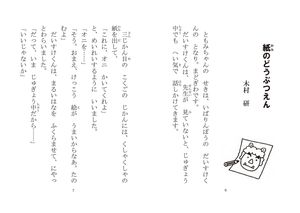 紙のどうぶつえん
木村 研
ともみちゃんの せきは、いちばんまえの だいすけく
んの となり。まどぎわです。
だいすけくんは、先生が 見ていないと、じゅぎょう
中でも へい気で 話しかけてきます。
6
三じかん目の こくごの じかんには、くしゃくしゃの
紙を出して、
「これに、オニ かいてくれよ」
と、めいれいするように いいました。
「オニを……」
「うう。おまえ、けっこう 絵が うまいからなあ。たの
むよ」
だいすけくんは、まるいはなを ふくらませて、にやっ
とわらいました。
「だって、いま じゅぎょう中だから――」
「いいじゃないか」
7